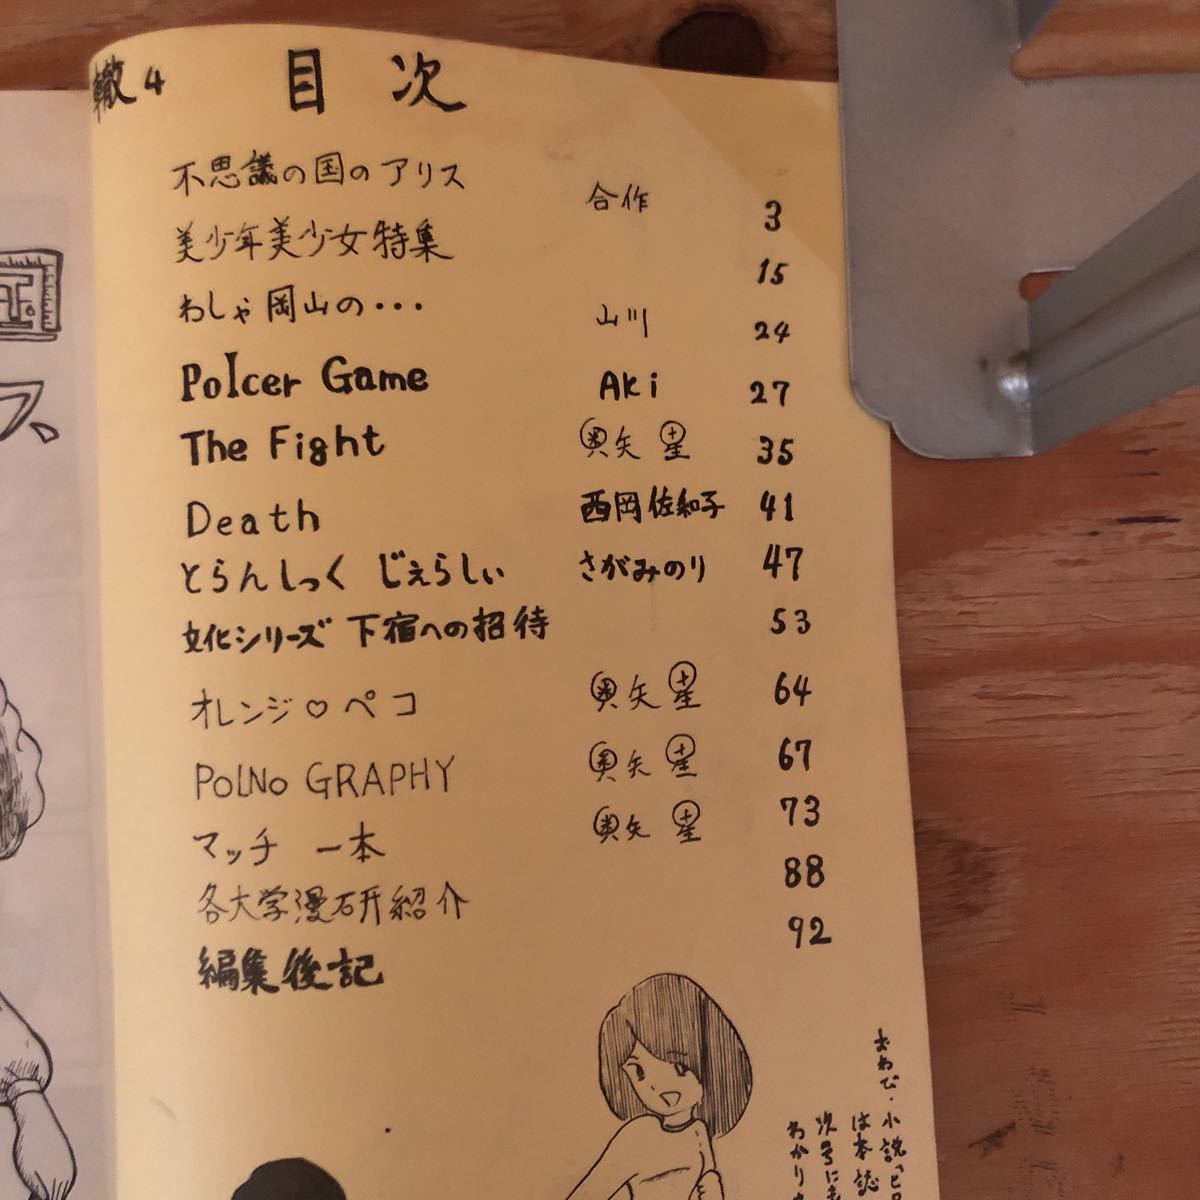 轍4 目次
不思議の国のアリス 合作 3
美少年美少女特集 15
わしゃ岡山の・・・ 山川 24
Polcer Game Aki 27
The Fight 奥矢 星 35
Death 西岡佐和子 41
とらんしっく じぇらしぃ さがみのり 47
文化シリーズ 下宿への招待 53
オレンジ♡ペコ 奥矢 星 64
PolNo GRAPHY 奥矢 星 67
マッチ 一本 奥矢 星 73
各大学漫研紹介 88
編集後記 92
おわび・小説「ピロ
は本誌
次号にま
わかり